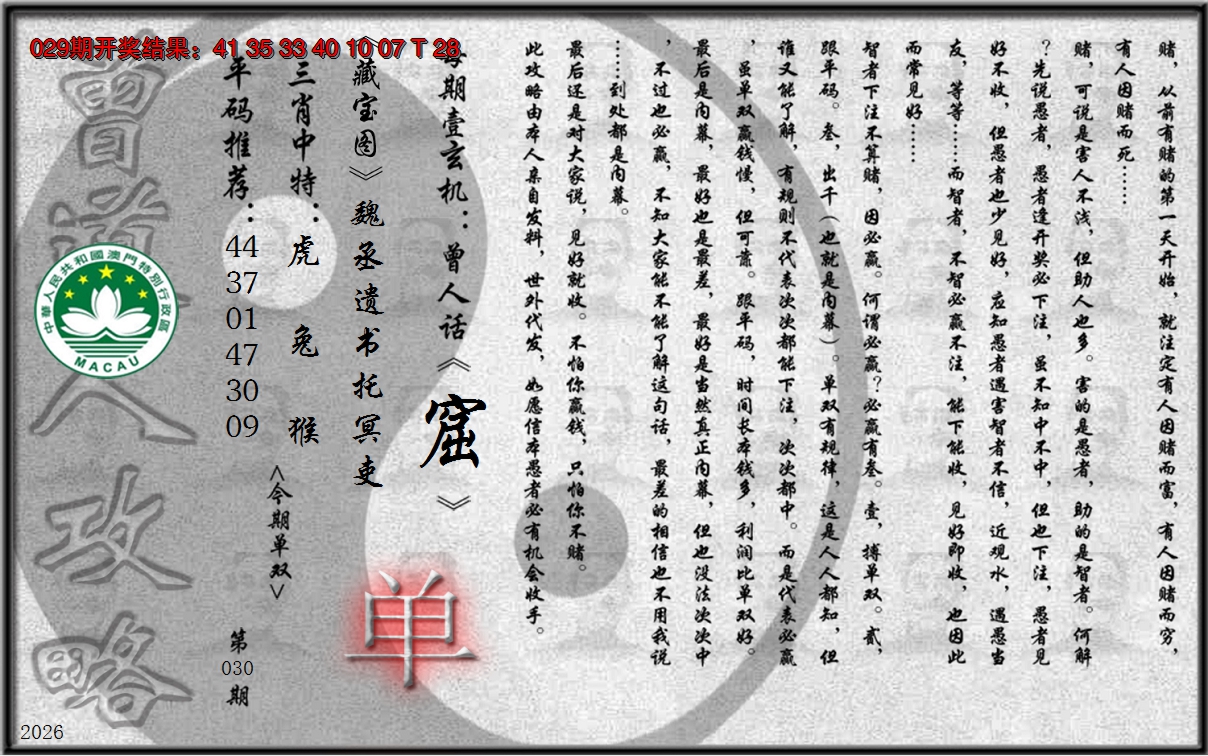 029期开奖结果：41 35 33 40 10 07 T 28
赌，从前有赌的第一天开始，就注定有人因赌而富，有人因赌而穷，
有人因赌而死……
赌，可说是害人不浅，但助人也多。害的是愚者，助的是智者。何解
？先说愚者，愚者逢开奖必下注，虽不知中不中，但也下注，愚者见
好不收，但愚者也少见好，应知愚者遇害智者不信，近观水，遇愚当
友，等等……而智者，不智必赢不注，能下能收，见好即收，也因此
而常见好……
智者下注不算赌，因必赢。何谓必赢？必赢有叁。壹，搏单双。贰，
跟平码。叁，出千（也就是内幕）。单双有规律，这是人人都知，但
谁又能了解，有规则不代表次次都能下注，次次都中。而是代表必赢
，虽单双赢钱慢，但可靠。跟平码，时间长本钱多，利润比单双好。
最后是内幕，最好也是最差，最好是当然真正内幕，但也没法次次中
，不过也必赢，不知大家能不能了解这句话，最差的相信也不用我说
……到处都是内幕。
最后还是对大家说，见好就收。不怕你赢钱，只怕你不赌。
此攻略由本人亲自发料，世外代发，如愿信本愚者必有机会收手。
每期壹玄机：曾人话《窟》
《藏宝图》魏丞遗书托冥吏
单
三肖中特：虎 兔 猴
<今期单双>
平码推荐：44 37 01 47 30 09
第030期
曾道人攻略
中華人民共和國澳門特別行政區
MACAU
2026